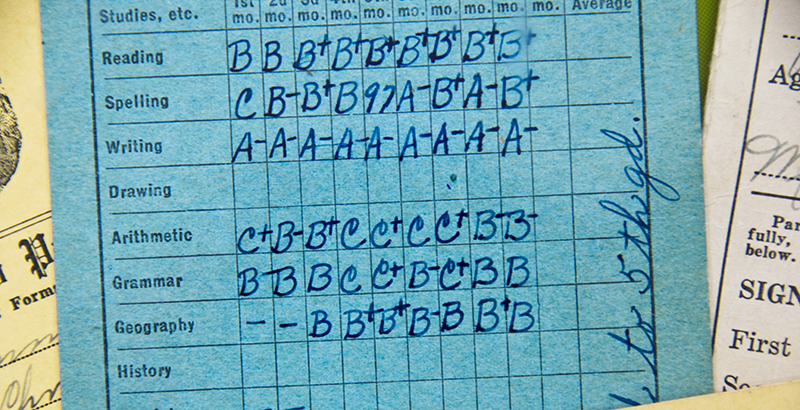 1st 2d 3d
Studies, etc. mo. mo. mo. mo. mo. mo. mo. mo. mo. mo. Average
Reading B B B+ B+ B+ B+ B+ B+ B+
Spelling C B- B+ B 97 A- B+ A- B+
Writing A- A- A- A- A- A- A- A- A-
Drawing
Arithmetic C+ B- B+ C C+ C C+ B- B-
Grammar B- B B C C+ B- C+ B B
Geography - - B B+ B+ B- B B+ B
History
to 5th gd.
Form
Ag
Par
fully,
below.
SIGN
First